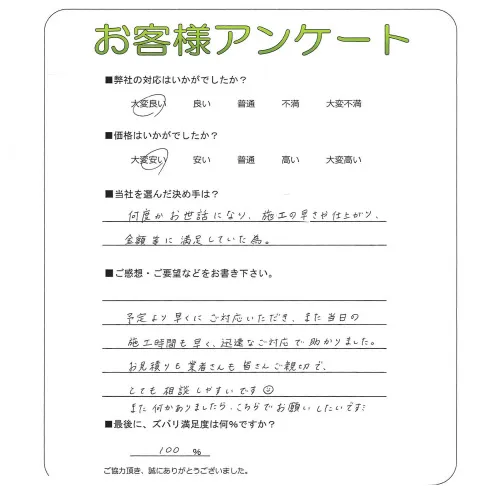 お客様アンケート
■弊社の対応はいかがでしたか？
大変良い 良い 普通 不満 大変不満
■価格はいかがでしたか？
大変安い 安い 普通 高い 大変高い
■当社を選んだ決め手は？
何度かお世話になり、施工の早さや仕上がり、
金額等に満足していた為。
■ご感想・ご要望などをお書き下さい。
予定より早くにご対応いただき、また当日の
施工時間も早く、迅速なご対応で助かりました。
お見積りも業者さんも皆さんご親切で、
とても相談しやすいです☺
また何かありましたら、こちらでお願いしたいです!
■最後に、ズバリ満足度は何％ですか？
100 %
ご協力頂き、誠にありがとうございました。